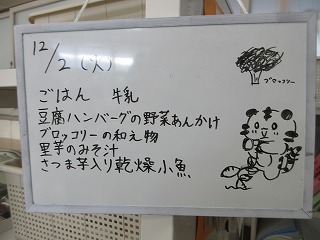 12/2(火)
ごはん 牛乳
豆腐ハンバーグの野菜あんかけ
ブロッコリーの和え物
里芋のみそ汁
さつま芋入り乾燥小魚
ブロッコリー